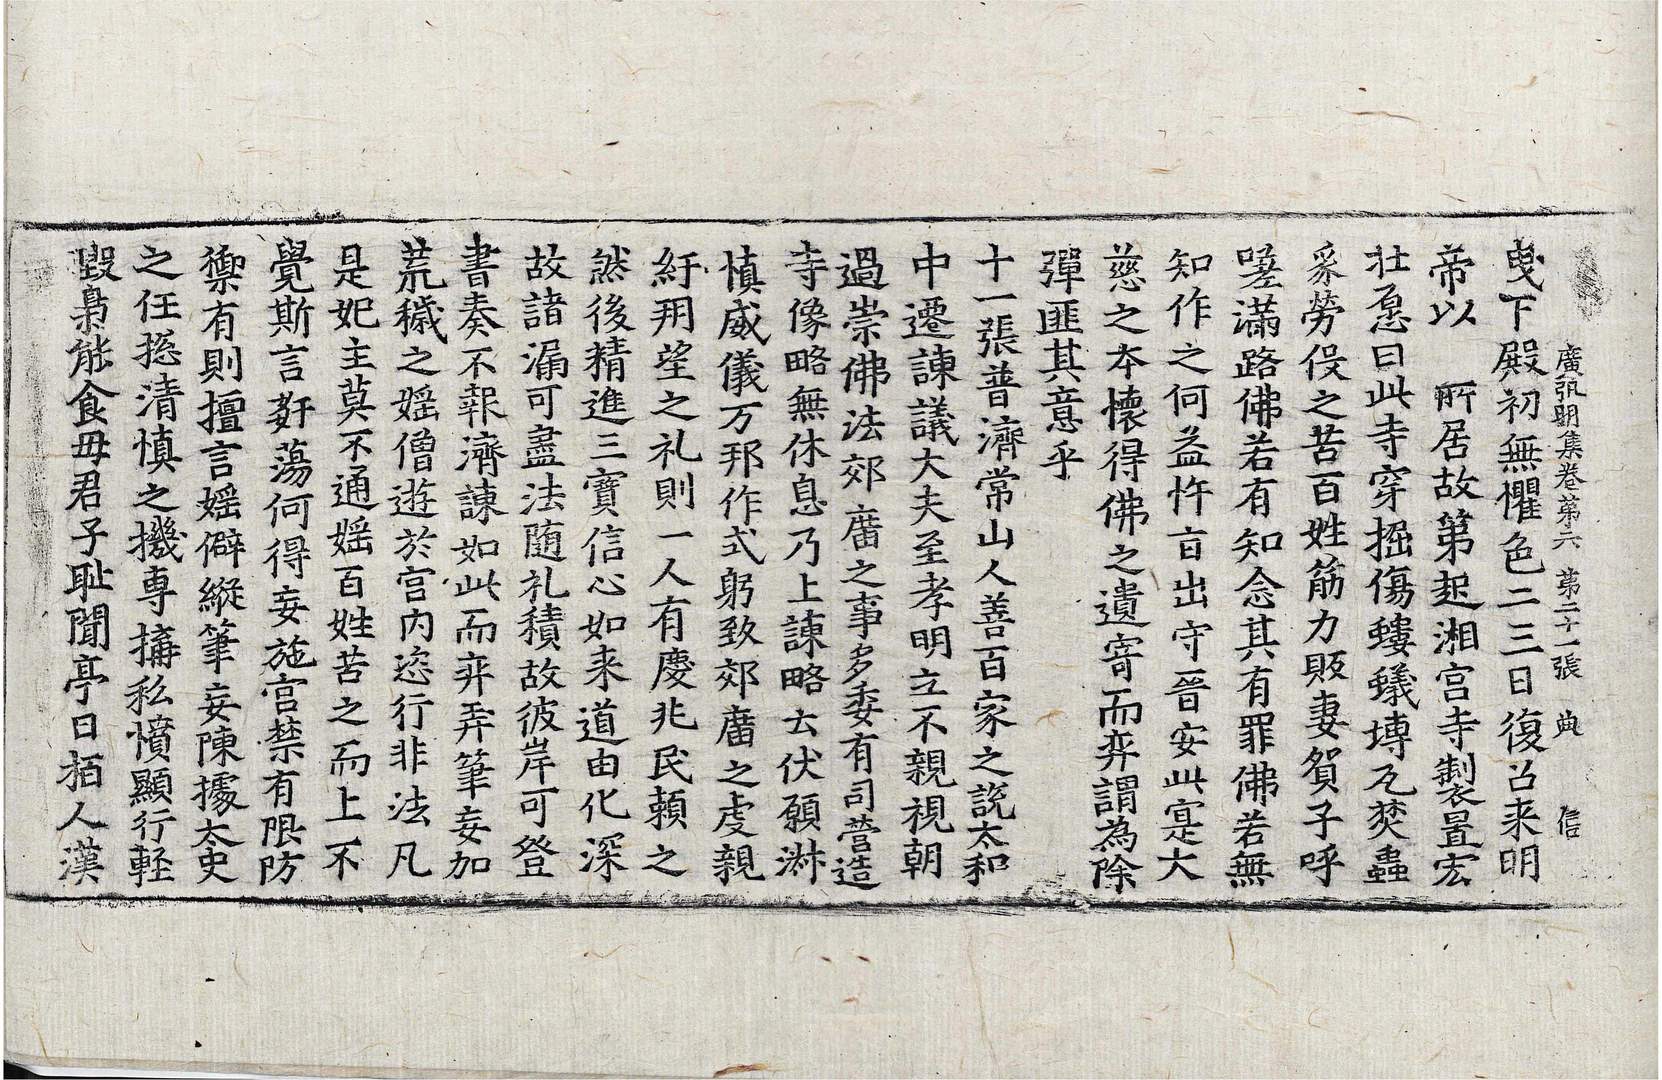 廣弘明集卷第六 第二十一張 典 信
曳下殿初無懼色二三日復召来明
帝以 所居故第起湘宮寺製置宏
壮愿曰此寺穿掘傷螻蟻塼瓦焚蟲
豸勞役之苦百姓筋力販妻貿子呼
嗟滿路佛若有知念其有罪佛若無
知作之何益忤旨出守晉安此寔大
慈之本懷得佛之遺寄而弈謂為除
彈匪其意乎
十一張普濟常山人善百家之說太和
中遷諫議大夫至孝明立不親視朝
過崇佛法郊廟之事多委有司營造
寺像略無休息乃上諫略云伏願淋
慎威儀万邦作式躬致郊廟之虔親
紆朔望之礼則一人有慶兆民賴之
然後精進三寳信心如来道由化深
故諸漏可盡法随礼積故彼岸可登
書奏不報濟諫如此而弈弄筆妄加
荒穢之婬僧遊於宮內恣行非法凡
是妃主莫不通婬百姓苦之而上不
覺斯言姧蕩何得妄施宮禁有限防
禦有則擅言婬僻縱筆妄陳據太史
之任捴清慎之機専搆私憤顯行輕
毀梟能食毋君子恥聞亭曰栢人漢